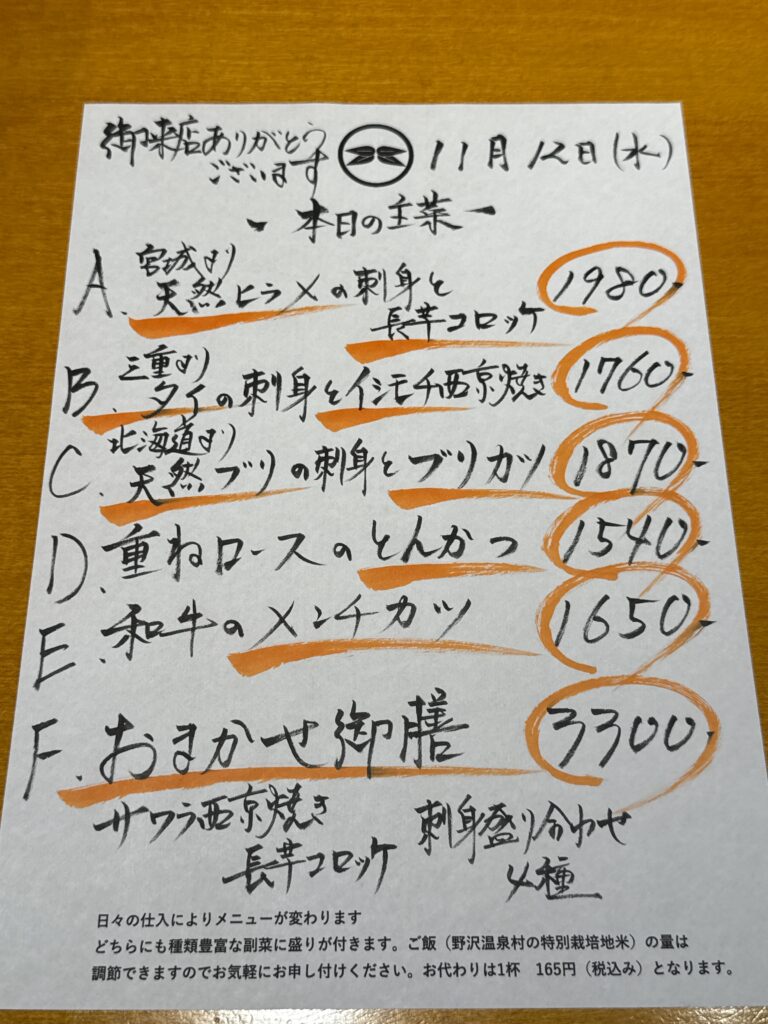 御来店ありがとう
ございます
11月12日(水)
- 本日の主菜 -
A. 宮城より
天然ヒラメの刺身と
長芋コロッケ
1980-
B. 三重より
タイの刺身とイシモチ西京焼き
1760-
C. 北海道より
天然ブリの刺身とブリカツ
1870-
D. 重ねロースのとんかつ
1540-
E. 和牛のメンチカツ
1650-
F. おまかせ御膳
3300-
サワラ西京焼き
長芋コロッケ
刺身盛り合わせ
4種
日々の仕入によりメニューが変わります
どちらにも種類豊富な副菜に盛りが付きます。ご飯（野沢温泉村の特別栽培地米）の量は
調節できますのでお気軽にお申し付けください。お代わりは1杯 165円（税込み）となります。